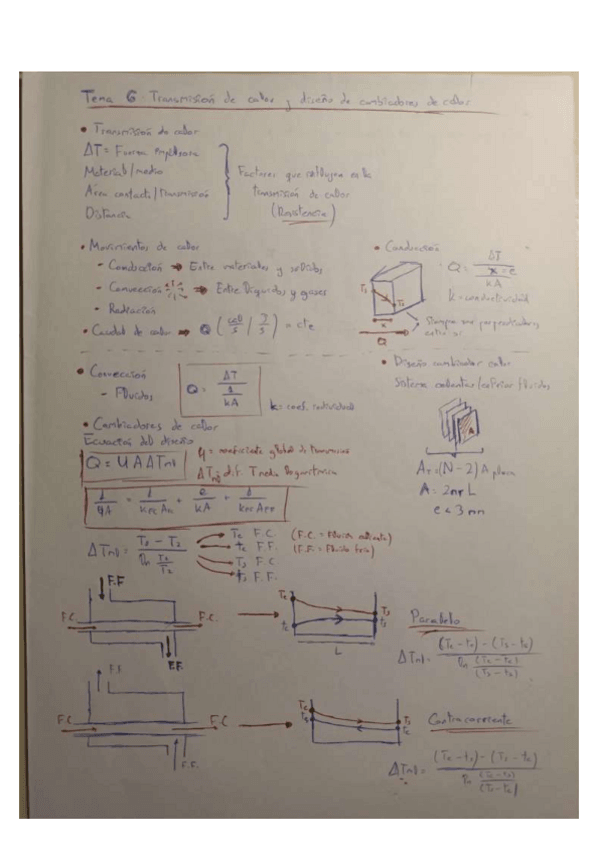 Tema 6 Transmisión de calor y diseño de cambiadores de calor
• Transmisión de calor
ΔT = Fuerza impulsora
Material/medio
Área contacto/transmisión
Distancia
Factores que influyen en la
transmisión de calor
(Resistencia)
• Movimientos de calor
- Conducción → Entre materiales y sólidos
- Convección → Entre líquidos y gases
- Radiación
• Caudal de calor → Q (cal/s / J/s) = cte
• Conducción
Q = ΔT / (x = e / kA)
k = conductividad
T₁
T₂
x
Q
Siempre son perpendiculares
• Convección
- Fluidos
Q = ΔT / (1 / kA)
k = coef. individual
• Cambiadores de calor
Ecuación del diseño
Q = U A ΔTml
U = coeficiente global de transmisión
ΔTml dif. T media logarítmica
• Diseño cambiador calor
Sistema calentar/enfriar fluidos
A
A_T = (N-2) A placa
A = 2πr L
e < 3 mm
ΔTml =
Te F.C. (F.C. = Fluido caliente)
te F.F. (F.F. = Fluido frío)
Ts F.C
ts F.F.
F.F
F.C.
F.C.
F.F.
Te
te
Ts
ts
L
Paralelo
ΔTml = (Te - te) - (Ts - ts) / ln (Te - te)/(Ts - ts)
F.F.
F.C.
F.C.
F.F.
Contracorriente
ΔTml = (Te - ts) - (Ts - te) / ln (Te - ts)/(Ts - te)